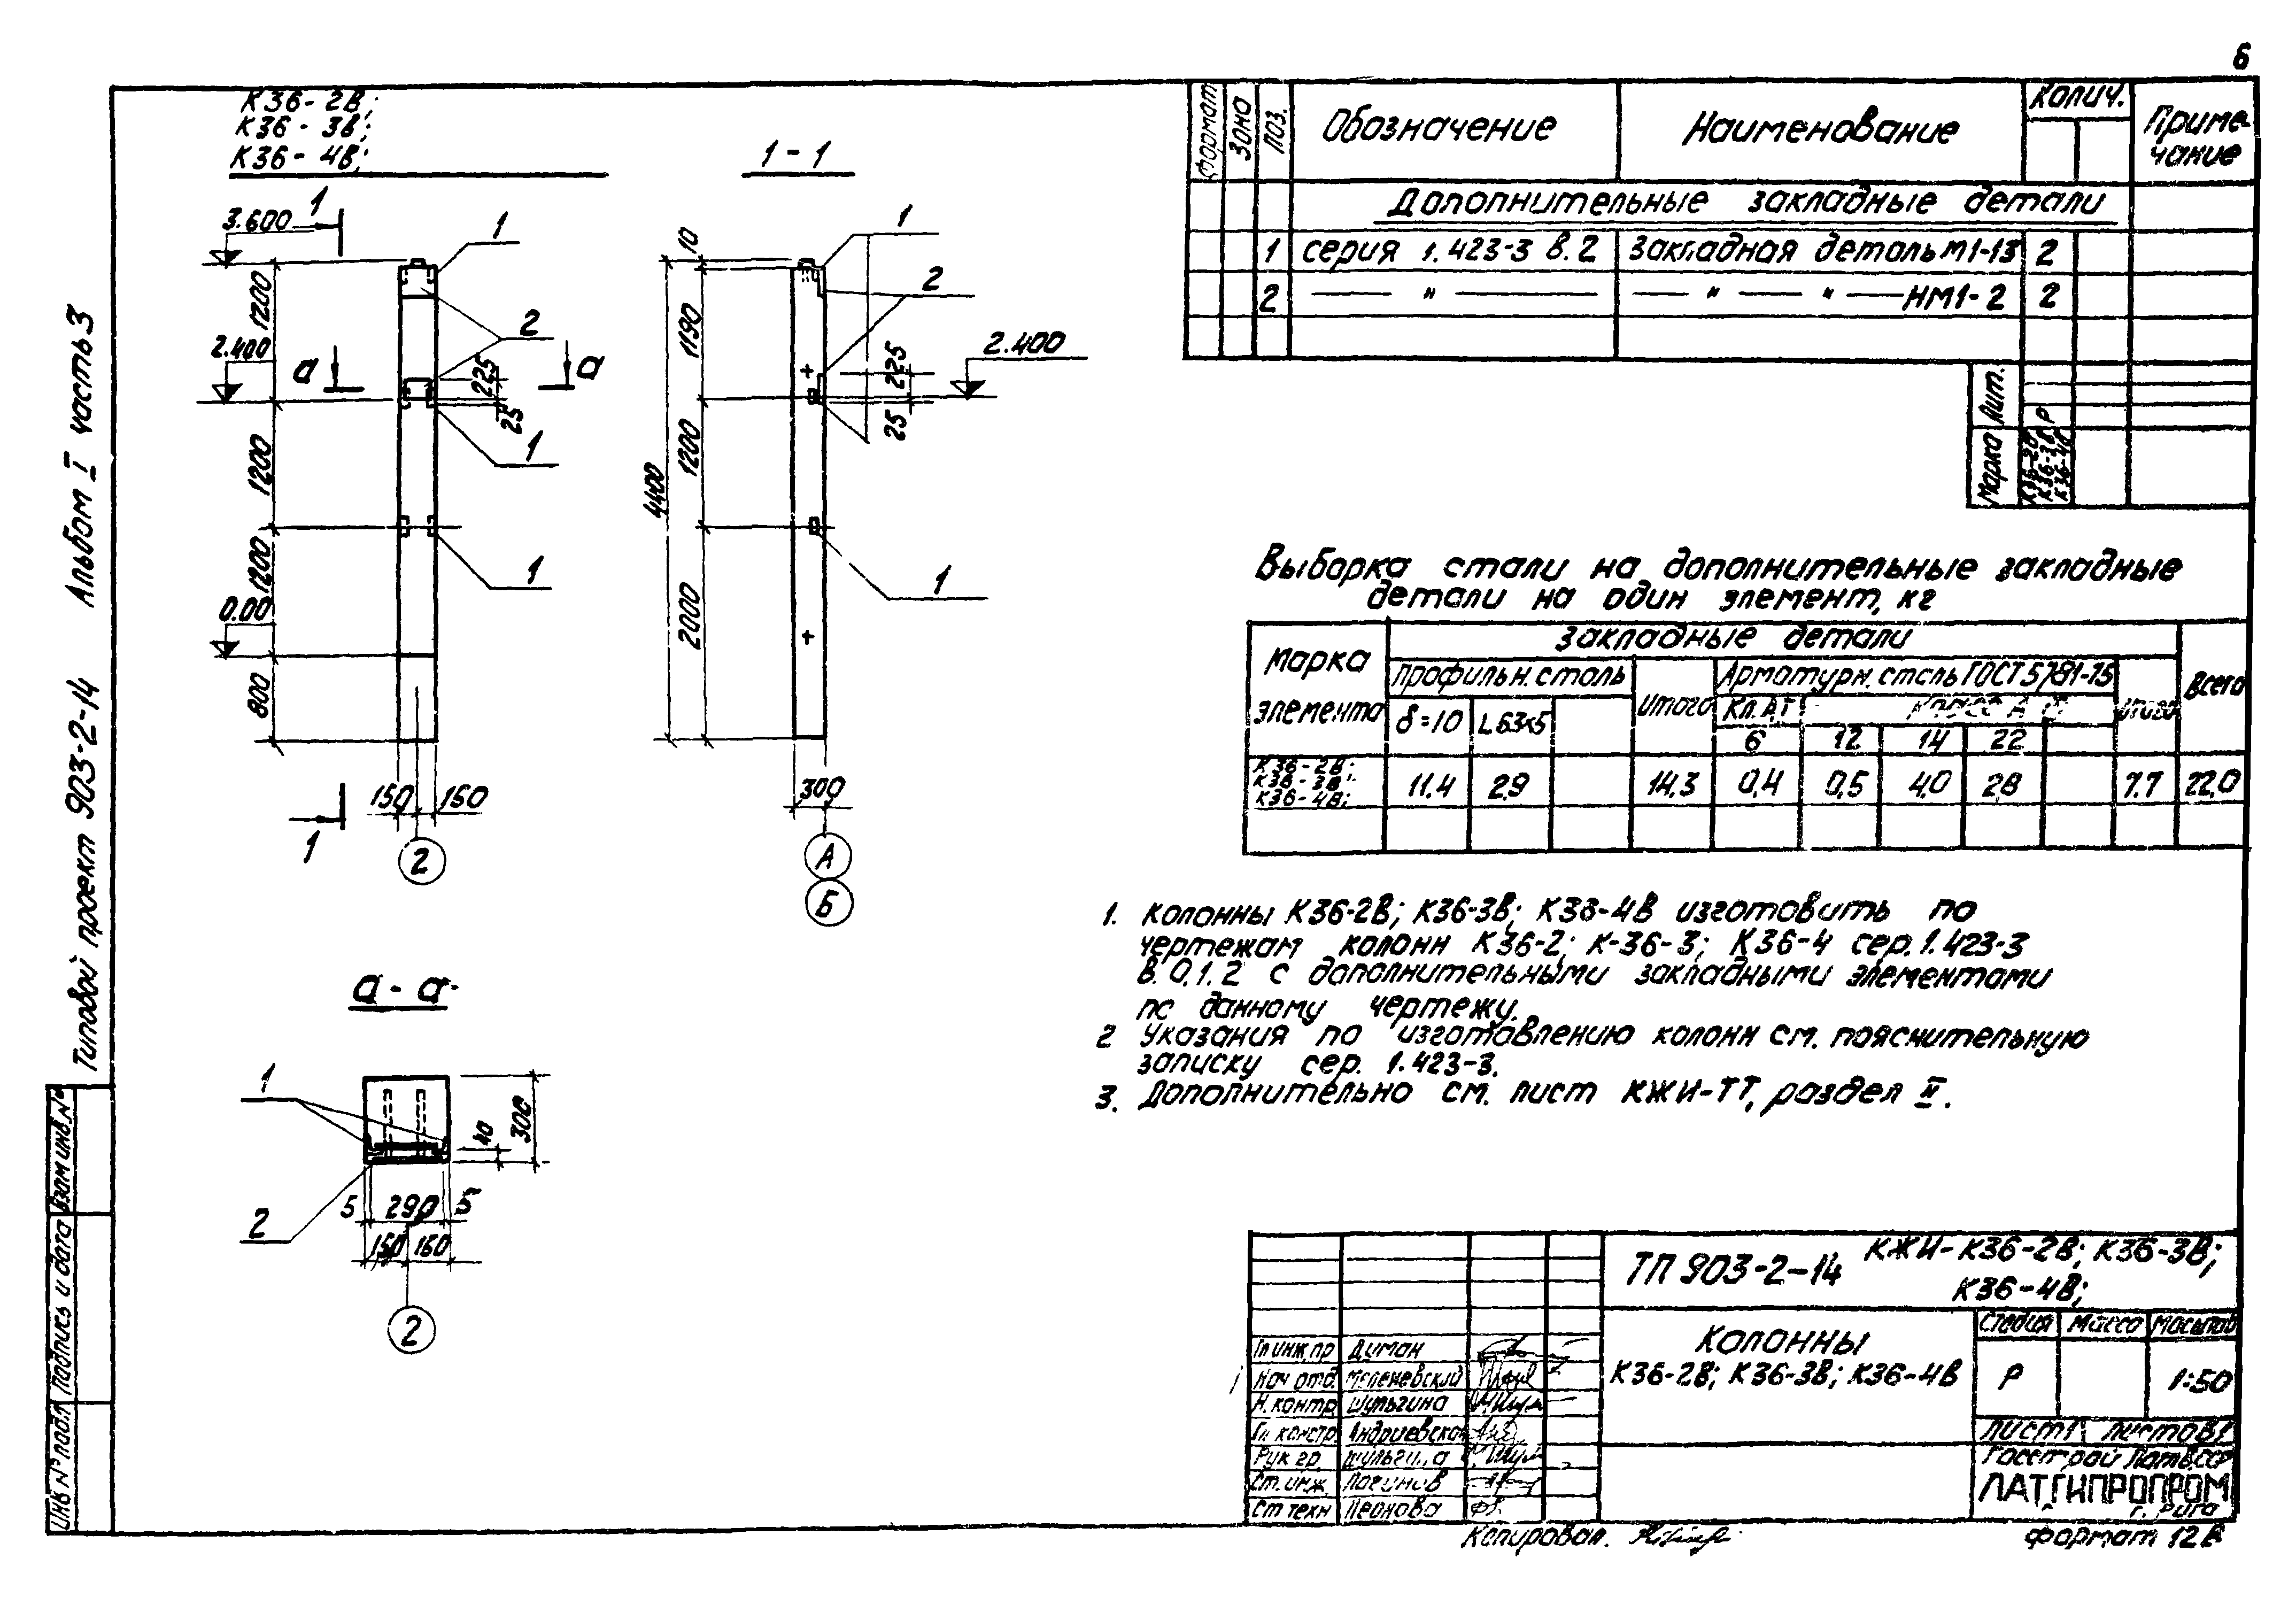 6
К36-2в;
К36-3в;
К36-4в;
1
3.600
1
1200
2
2.400
а
а
225
25
1200
1
1200
1
0.00
800
150
150
1
2
1-1
10
1
2
1190
225
2.400
25
1200
4400
1
2000
300
А
Б
а-а
1
40
300
5
290
5
2
150
150
2
Формат
Зона
Поз.
Обозначение
Наименование
Колич.
Приме-
чание
Дополнительные закладные детали
1 серия 1.423-3 в.2 Закладная деталь М1-13 2
2 — " — — " — " — НМ1-2 2
Лит.
Р
Марка
К36-2в
К36-3в
К36-4в
Выборка стали на дополнительные закладные
детали на один элемент, кг
Марка
элемента
Закладные детали
Всего
Профильн. сталь
Итого
Арматурн. сталь ГОСТ 5781-75
Итого
δ=10
L63х5
Кл. А I
Класс А
6 12 14 22
К36-2в;
К36-3в;
К36-4в;
11.4 2,9 14,3 0,4 0,5 4,0 2,8 7.7 22,0
1. Колонны К36-2в; К36-3в; К36-4в изготовить по
чертежам колонн К36-2; К-36-3; К36-4 сер. 1.423-3
в. 0,1.2 с дополнительными закладными элементами
по данному чертежу.
2 Указания по изготовлению колонн см. пояснительную
записку сер. 1.423-3.
3. Дополнительно см. лист КЖИ-ТТ, раздел II.
Типовой проект 903-2-14 Альбом I часть 3
Взам инв.№
Подпись и дата
Инв № подл
ТП 903-2-14
КЖИ-К36-2в; К36-3в;
К36-4в;
Колонны
К36-2в; К36-3в; К36-4в
Стадия Масса Масштаб
Р 1:50
Лист 1 Листов 1
Госстрой Латв.ССР
ЛАТГИПРОПРОМ
г. Рига
Гл инж пр Диман
Нач отд.
Н. контр Шульгина
Гл констр. Андриевская
Рук гр Шульгина
Ст. инж. Логинов
Ст техн
Копировал.
Формат 12В